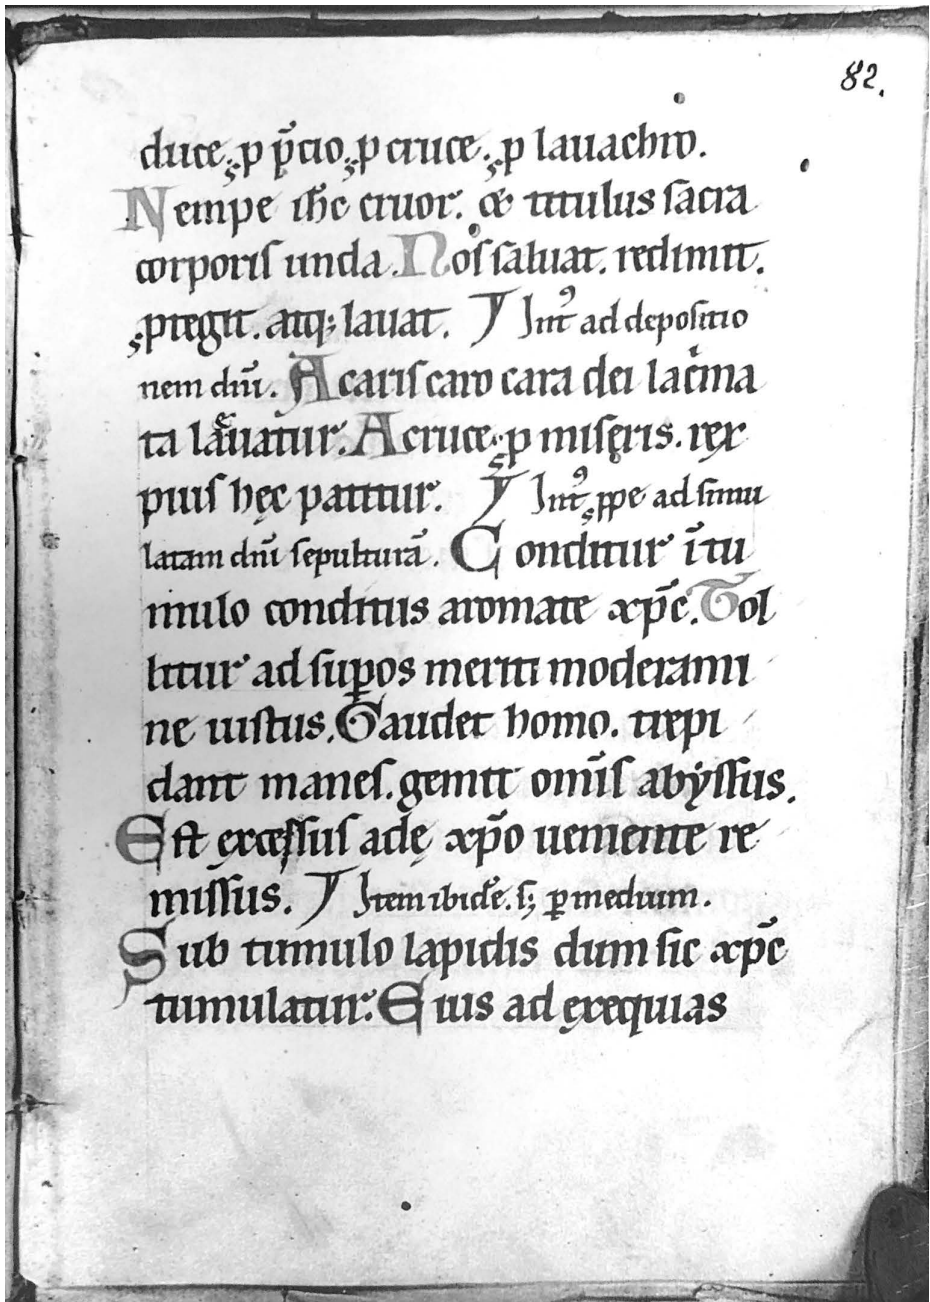 82.
duce, ꝓ p̄cio, ꝓ cruce, ꝓ lauachro.
Nempe ih̄c cruor. & titulus sacra
corporis unda. Nos saluat. redimit.
ꝓtegit. atq; lauat. Int᷒ ad depositio
nem dn̄i. A caris caro cara dei lac̍ma
ta lauatur. A cruce ꝓ miseris. rex
pius hęc patitur. Int᷒ ꝓpe ad simu
latam dn̄i sepulturā. Conditur ī tu
mulo conditus aromate xp̄c. Tol
litur ad suꝑos meriti moderami
ne iustus. Gaudet homo. trepi
dant manes. gemit om̄is abyssus.
Est excessus adę xp̄o ueniente re
missus. Item ibidē. s; ꝑ medium.
Sub tumulo lapidis dum sic xp̄c
tumulatur. Eius ad exequias